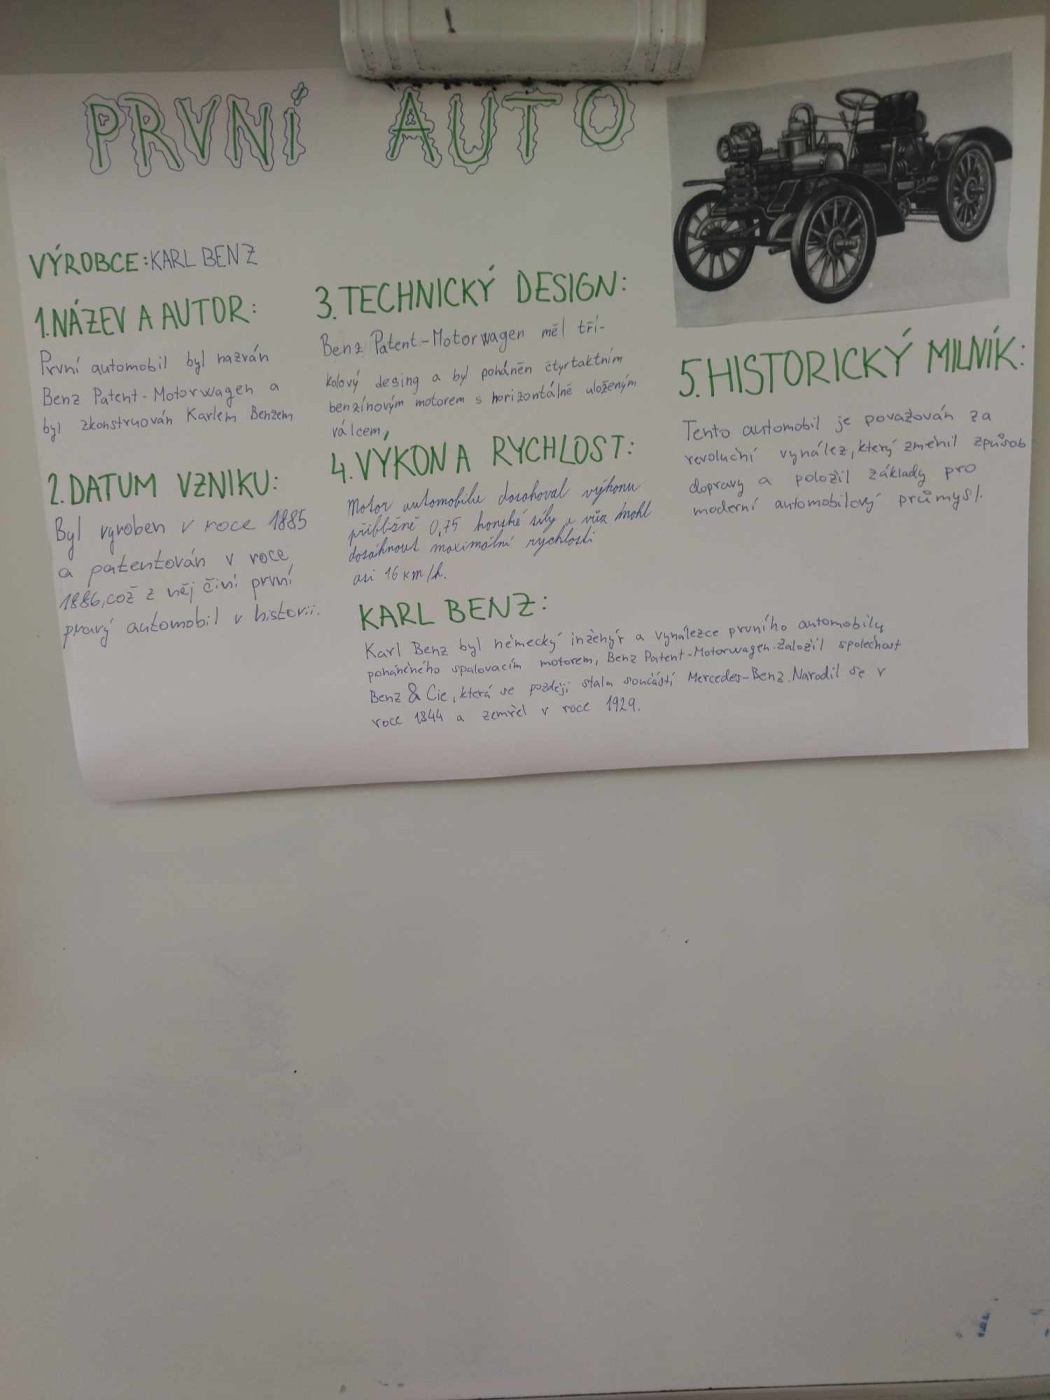 PRVNÍ AUTO
VÝROBCE: KARL BENZ
1. NÁZEV A AUTOR:
První automobil byl nazván
Benz Patent-Motorwagen a
byl zkonstruován Karlem Benzem
2. DATUM VZNIKU:
Byl vyroben v roce 1885
a patentován v roce
1886, což z něj činí první
pravý automobil v historii.
3. TECHNICKÝ DESIGN:
Benz Patent-Motorwagen měl tří-
kolový desing a byl poháněn čtyrtaktním
benzínovým motorem s horizontálně uloženým
válcem,
4. VÝKON A RYCHLOST:
Motor automobilu dosahoval výkonu
přibližně 0,75 koňské síly a vůz mohl
dosáhnout maximální rychlosti
asi 16 km/h.
5. HISTORICKÝ MILNÍK:
Tento automobil je považován za
revoluční vynález, který změnil způsob
dopravy a položil základy pro
moderní automobilový průmysl.
KARL BENZ:
Karl Benz byl německý inženýr a vynálezce prvního automobilu
poháněného spalovacím motorem, Benz Patent-Motorwagen. Založil společnost
Benz & Cie, která se později stala součástí Mercedes-Benz. Narodil se v
roce 1844 a zemřel v roce 1929.